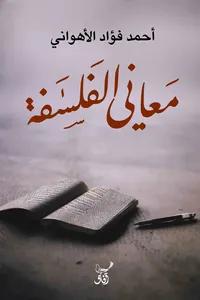 أحمد فؤاد الأهواني
معاني الفلسفة
آفاق